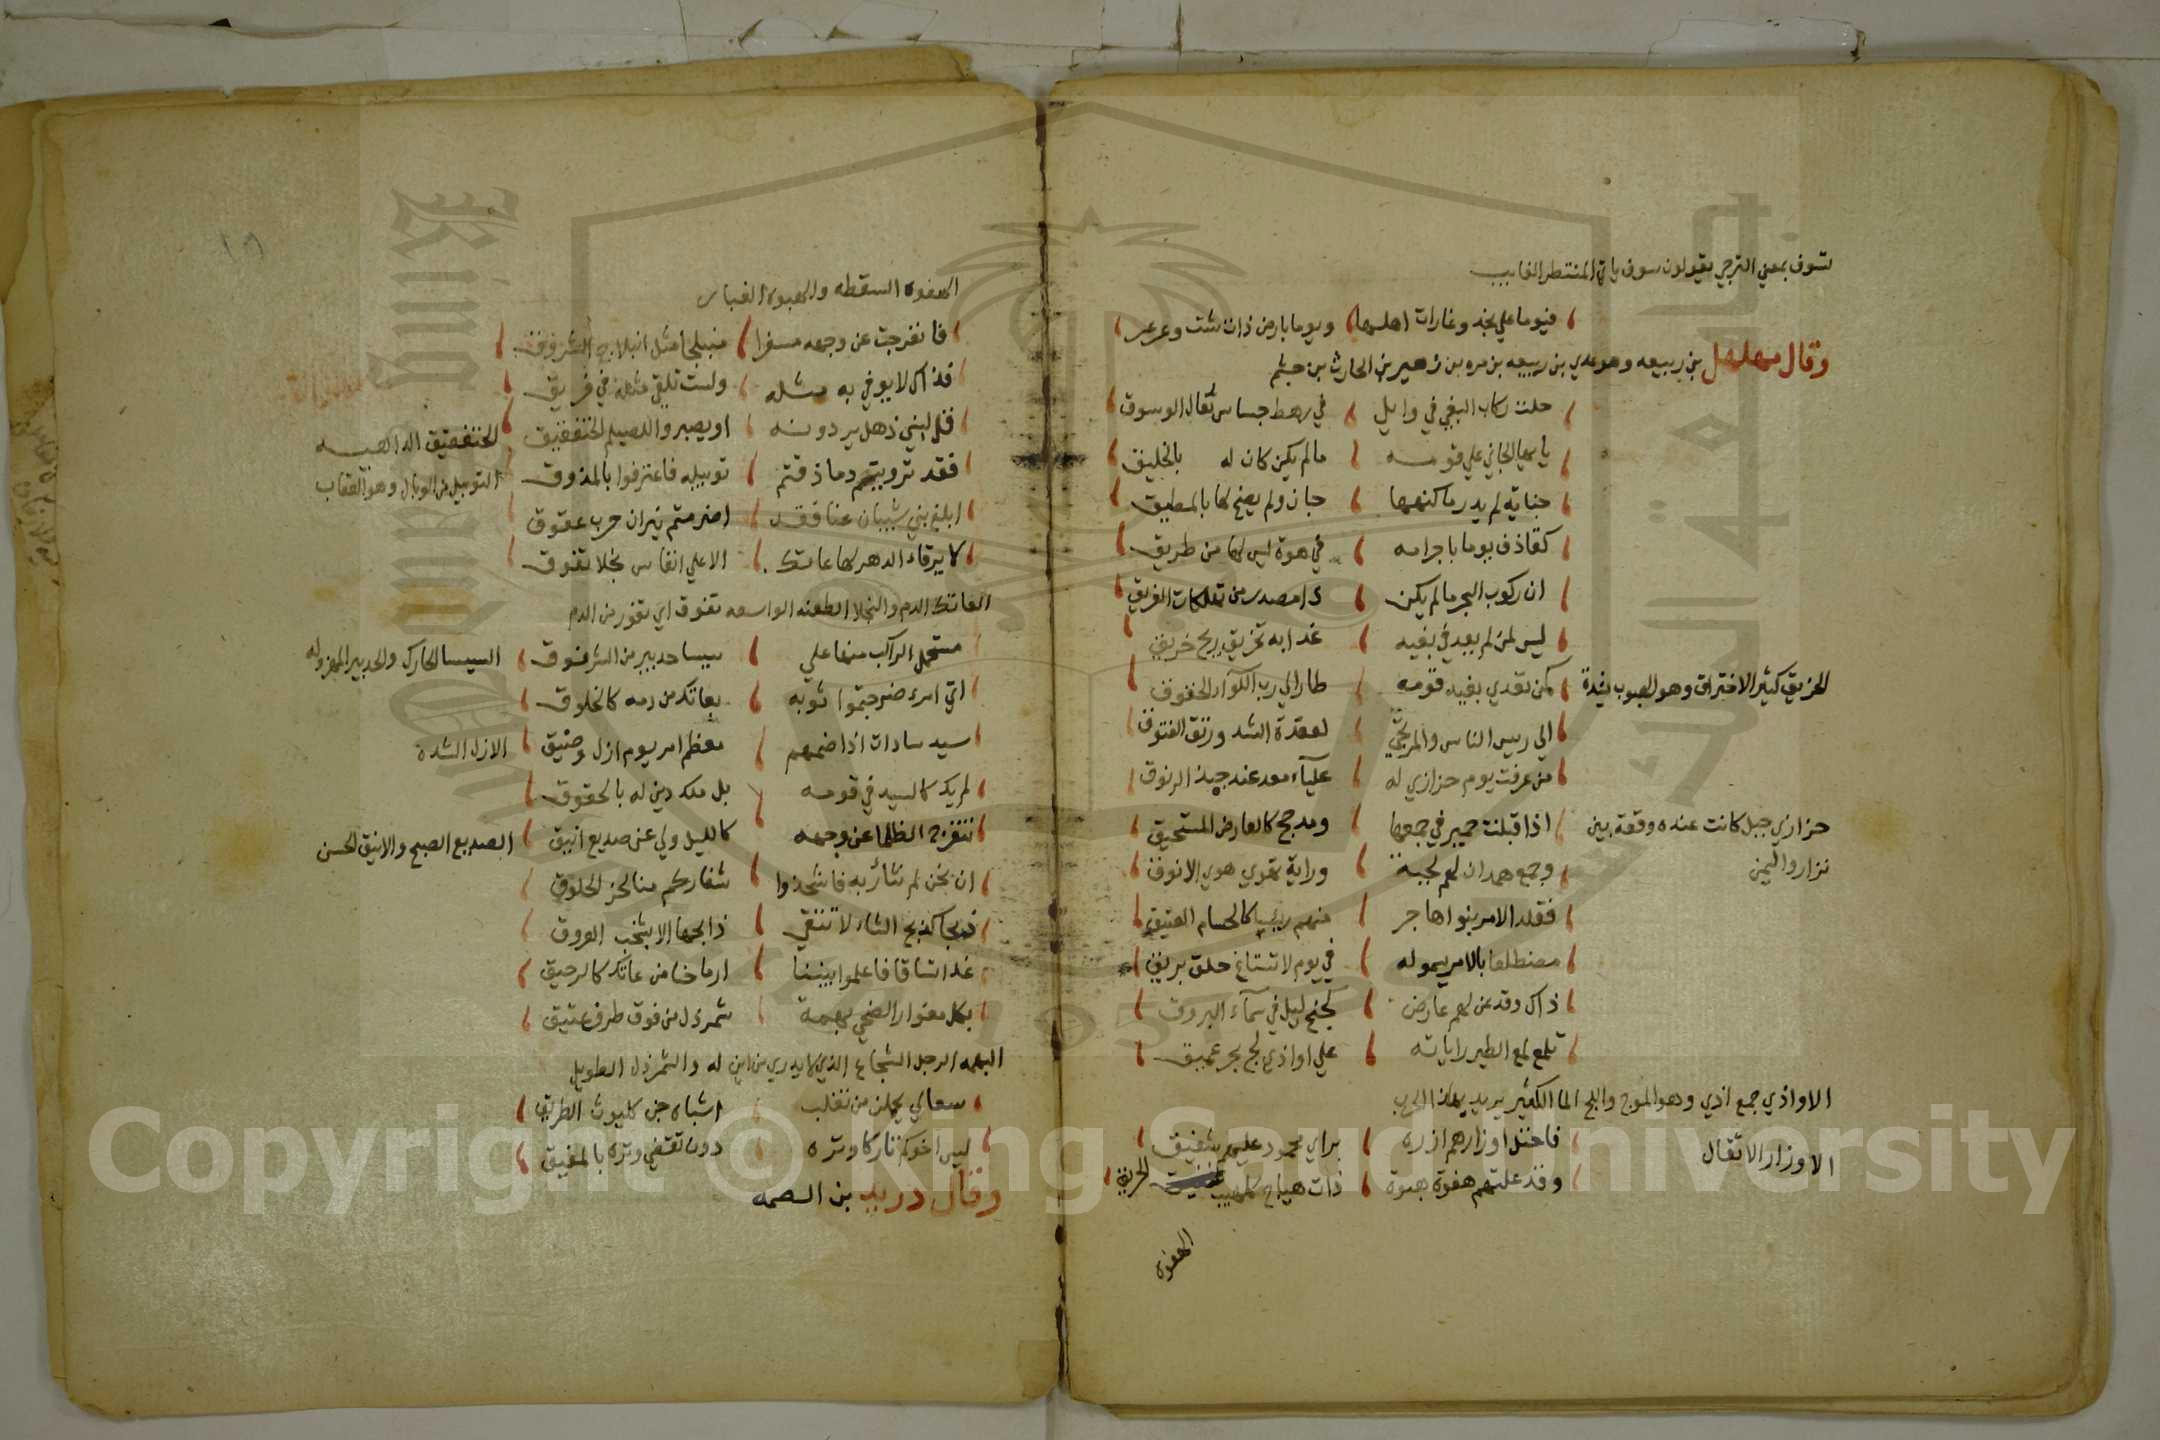 تسوف بمعني الترجي يقولون سوف ياتي المنتظر الغايب
فيوما علي نجد وغارات اهلها ويوما بارض ذات شت وعرعر
وقال مهلهل بن ربيعه وهو عدي بن ربيعه بن مره بن زهير بن الحارث بن جشم
حلت ركاب البغي في وايل في رهط جساس ثقال الوسوق
يا ايها الجاني علي قومه ما لم يكن كان له بالخليق
جناية لم يدر ما كنهها جان ولم يصبح لها بالمطيق
كقاذف يوما باجرامه في هوة ليس لها من طريق
ان ركوب البحر ما لم يكن ذا مصدر من تهلكات الغريق
ليس لمن لم يعد في بغيه غدا به تخريق ريح خريق
كمن تعدي بغيه قومه طار الي رب اللواء الخفوق
الخريق كثير الاختراق وهو الهبوب بشدة
الي رييس الناس والمرتجي لعقدة الشد ورتق الفتوق
من عرفت يوم حزازي له علياء معد عند جبذ الرتوق
اذ اقبلت حمير في جمعها ومذحج كالعارض المستحيق
حزازي جبل كانت عنده وقعة بين
نزار واليمن
وجمع همدان لهم لجبة وراية تهوي هوي الانوق
فقلد الامر بنو هاجر منهم رييسا كالحسام العتيق
مضطلعا بالامر يسمو له في يوم لا تستاغ حلق بريق
ذاك وقد عن لهم عارض كجنح ليل في سماء البروق
تلمع لمع الطير راياته علي اواذي لج بحر عميق
الاواذي جمع اذي وهو الموج واللج الما الكثير يريد بهذا الحرب
فاحتل اوزارهم ازره براي محمود عليهم شفيق
الاوزار الاثقال
وقد علتهم هفوة هبوة ذات هياج كلهيب الحريق
الهفوة
الهفوه السقطه والهبوه الغبار
فانفرجت عن وجهه مسفرا منبلجا مثل انبلاج الشروق
فذاك لا يوفي به مثله ولست تلقي مثله في فريق
قل لبني ذهل يردونه او يصبروا للصيلم الخنفقيق
الخنفقيق الداهيه
فقد ترويتم دما ذقتم توبيله فاعترفوا بالمذوق
التوبيل من الوبال وهو العقاب
ابلغ بني شيبان عنا فقد اضرمتم نيران حرب عقوق
لا يرقاء الدهر لها عاتك الا علي انفاس نجلا تفوق
العاتك الدم والنجلا الطعنه الواسعه تفوق اي تفور من الدم
مستحمل الراكب منها علي سيسا حدبير من الشرنوق
السيسا الحارك والحدبير المهزوله
اي امرء ضرجتموا ثوبه بعاتك من دمه كالخلوق
سيد سادات اذا ضمهم معظم امر يوم ازل وضيق
الازل الشده
لم يك كالسيد في قومه بل ملك دين له بالحقوق
تنفرج الظلما عن وجهه كالليل ولي عن صديع انيق
الصديع الصبح والانيق الحسن
ان نحن لم نثار به فاشحذوا شفاركم منا لحز الحلوق
ذبحا كذبح الشاء لا تتقي ذابحها الا بشخب العروق
غدا نساقا فاعلموا بيننا ارماحنا من عاتك كالرحيق
بكل مغوار الضحي بهمة شمردل من فوق طرف عتيق
البهمه الرجل الشجاع الذي لا يدري من اين له والشمردل الطويل
سعالي يحملن من تغلب اشباه جن كليوث الطريق
ليس اخوكم تاركا وتره دون تقضي وتره بالمفيق
وقال دريد بن الصمه